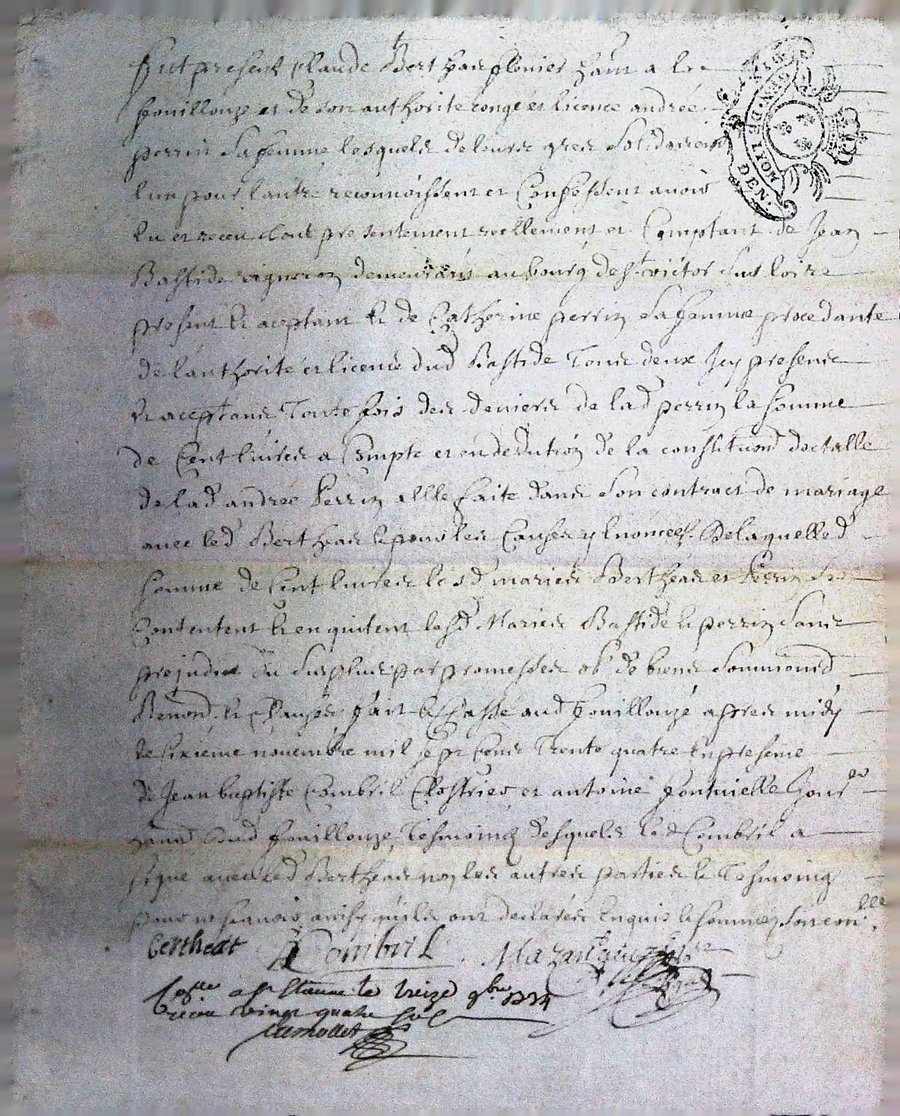 Fut present Claude Berthear clonier hant a la
fouillouze et de son authorite conge et licence andree
perrin sa femme lesquels de leurs gres solidairemt
lun pour lautre reconnoissent et Confessent avoir
Eu et receu Cons presentement reellement et Comptant de Jean
Bastide vigneron demeurant au bourg de st victor sur loire
present & aceptant & de Catherine perrin sa femme procedante
de lauthorité et licence dud Bastide Tous deux Icy presens
& aceptans Toutefois des deniers de lad perrin la somme
de Cent livres a Compte et en dedution de la constitution doctalle
de lad andree Perrin a Elle faite dans son contract de mariage
avec led Berthear & pour les Causes y Enoncees. De laquelle d
somme de Cent livres les sd maries Berthear et Perrin se
Contentent & en quitent lesd Maries Bastide & perrin sans
prejudice du surplus par promesses obl de biens soumions
Renond & Clauses fait & passe aud fouillouze apres midy
le sixieme novembre mil sept Cens Trente quatre En presence
de Jean baptiste Combril Clostrier et antoine fontvielle
dud fouillouze, Tesmoins desquels led Combril a
signé avec led Berthear non les autres parties & Tesmoing
pour ne scavoir ainsy quils ont declarés Enquis & sommes soivent
bertheat Combril Mazan
Cosle a st Etienne le treize 9bre 1734
Receu vingt quatre sols